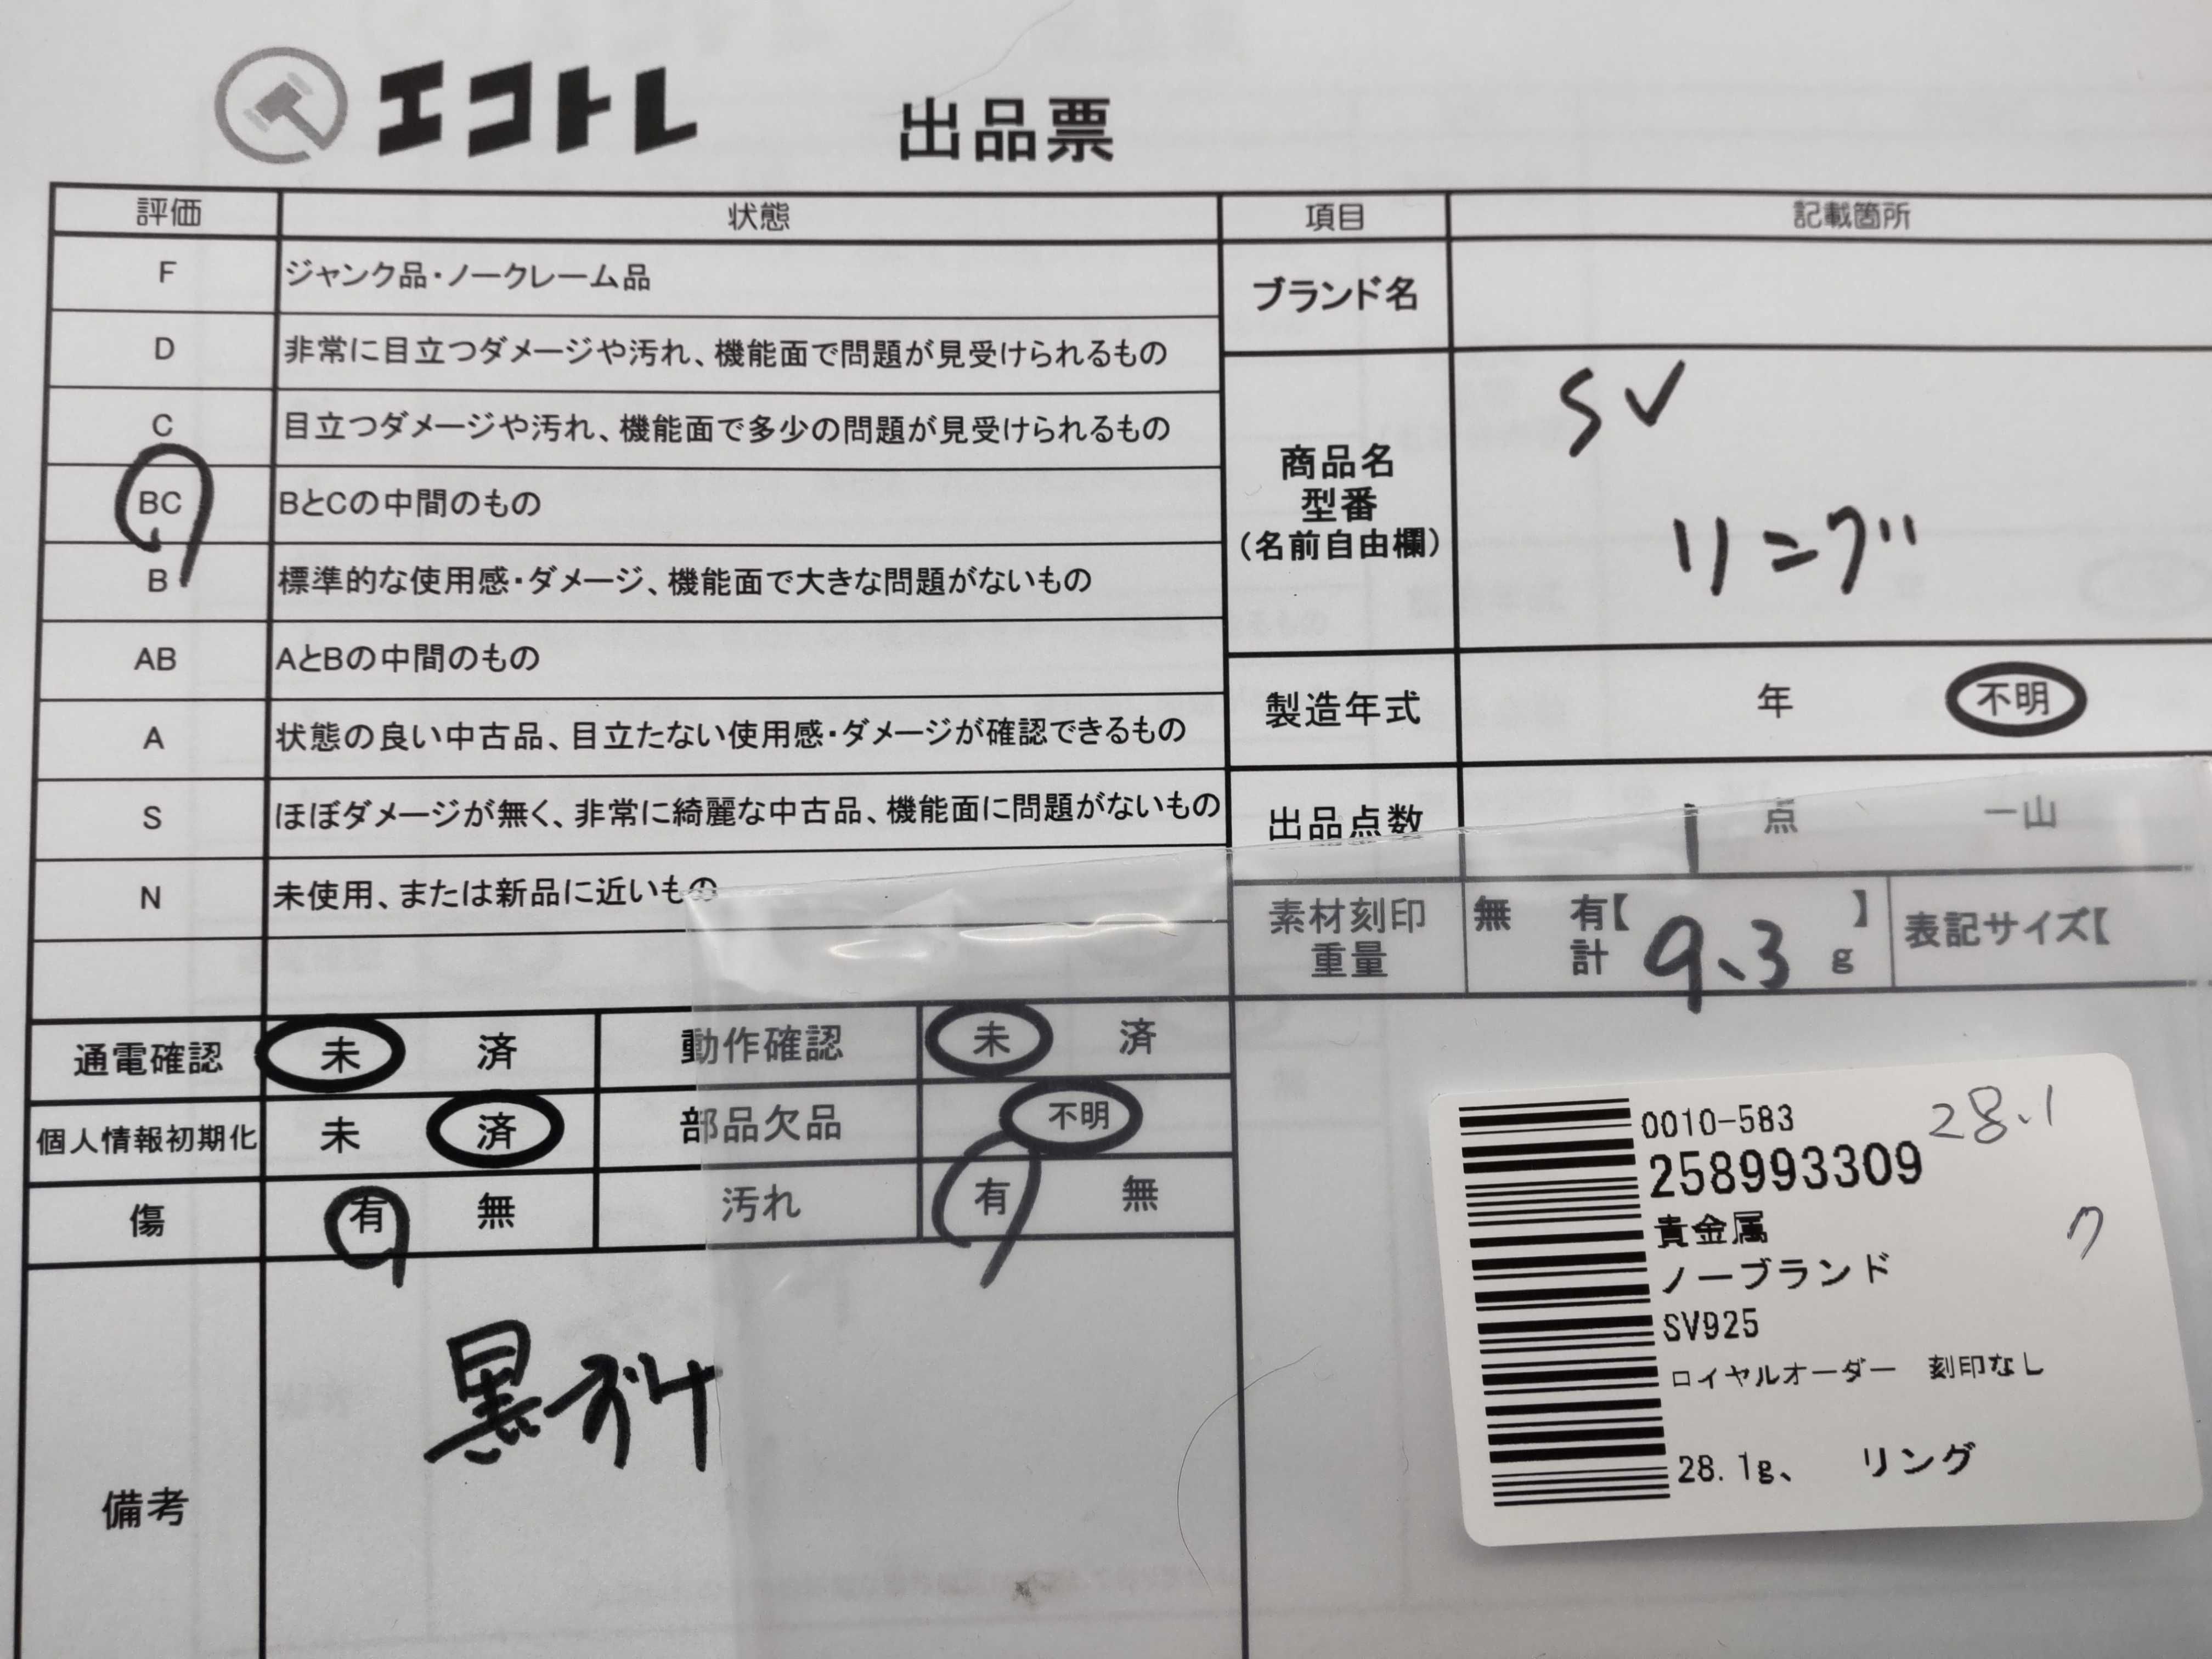 エコトレ 出品票
評価 状態 項目 記載箇所
F ジャンク品・ノークレーム品
D 非常に目立つダメージや汚れ、機能面で問題が見受けられるもの
C 目立つダメージや汚れ、機能面で多少の問題が見受けられるもの
BC BとCの中間のもの
B 標準的な使用感・ダメージ、機能面で大きな問題がないもの
AB AとBの中間のもの
A 状態の良い中古品、目立たない使用感・ダメージが確認できるもの
S ほぼダメージが無く、非常に綺麗な中古品、機能面に問題がないもの
N 未使用、または新品に近いもの
ブランド名
商品名
型番
(名前自由欄)
SV
リング
製造年式 年 不明
出品点数 1 点 一山
素材刻印 無 有【 】 表記サイズ【
重量 計 9.3 g
通電確認 未 済 動作確認 未 済
個人情報初期化 未 済 部品欠品 不明
傷 有 無 汚れ 有 無
備考
0010-583 28.1
258993309
貴金属
ノーブランド
SV925
ロイヤルオーダー 刻印なし
28.1g、 リング